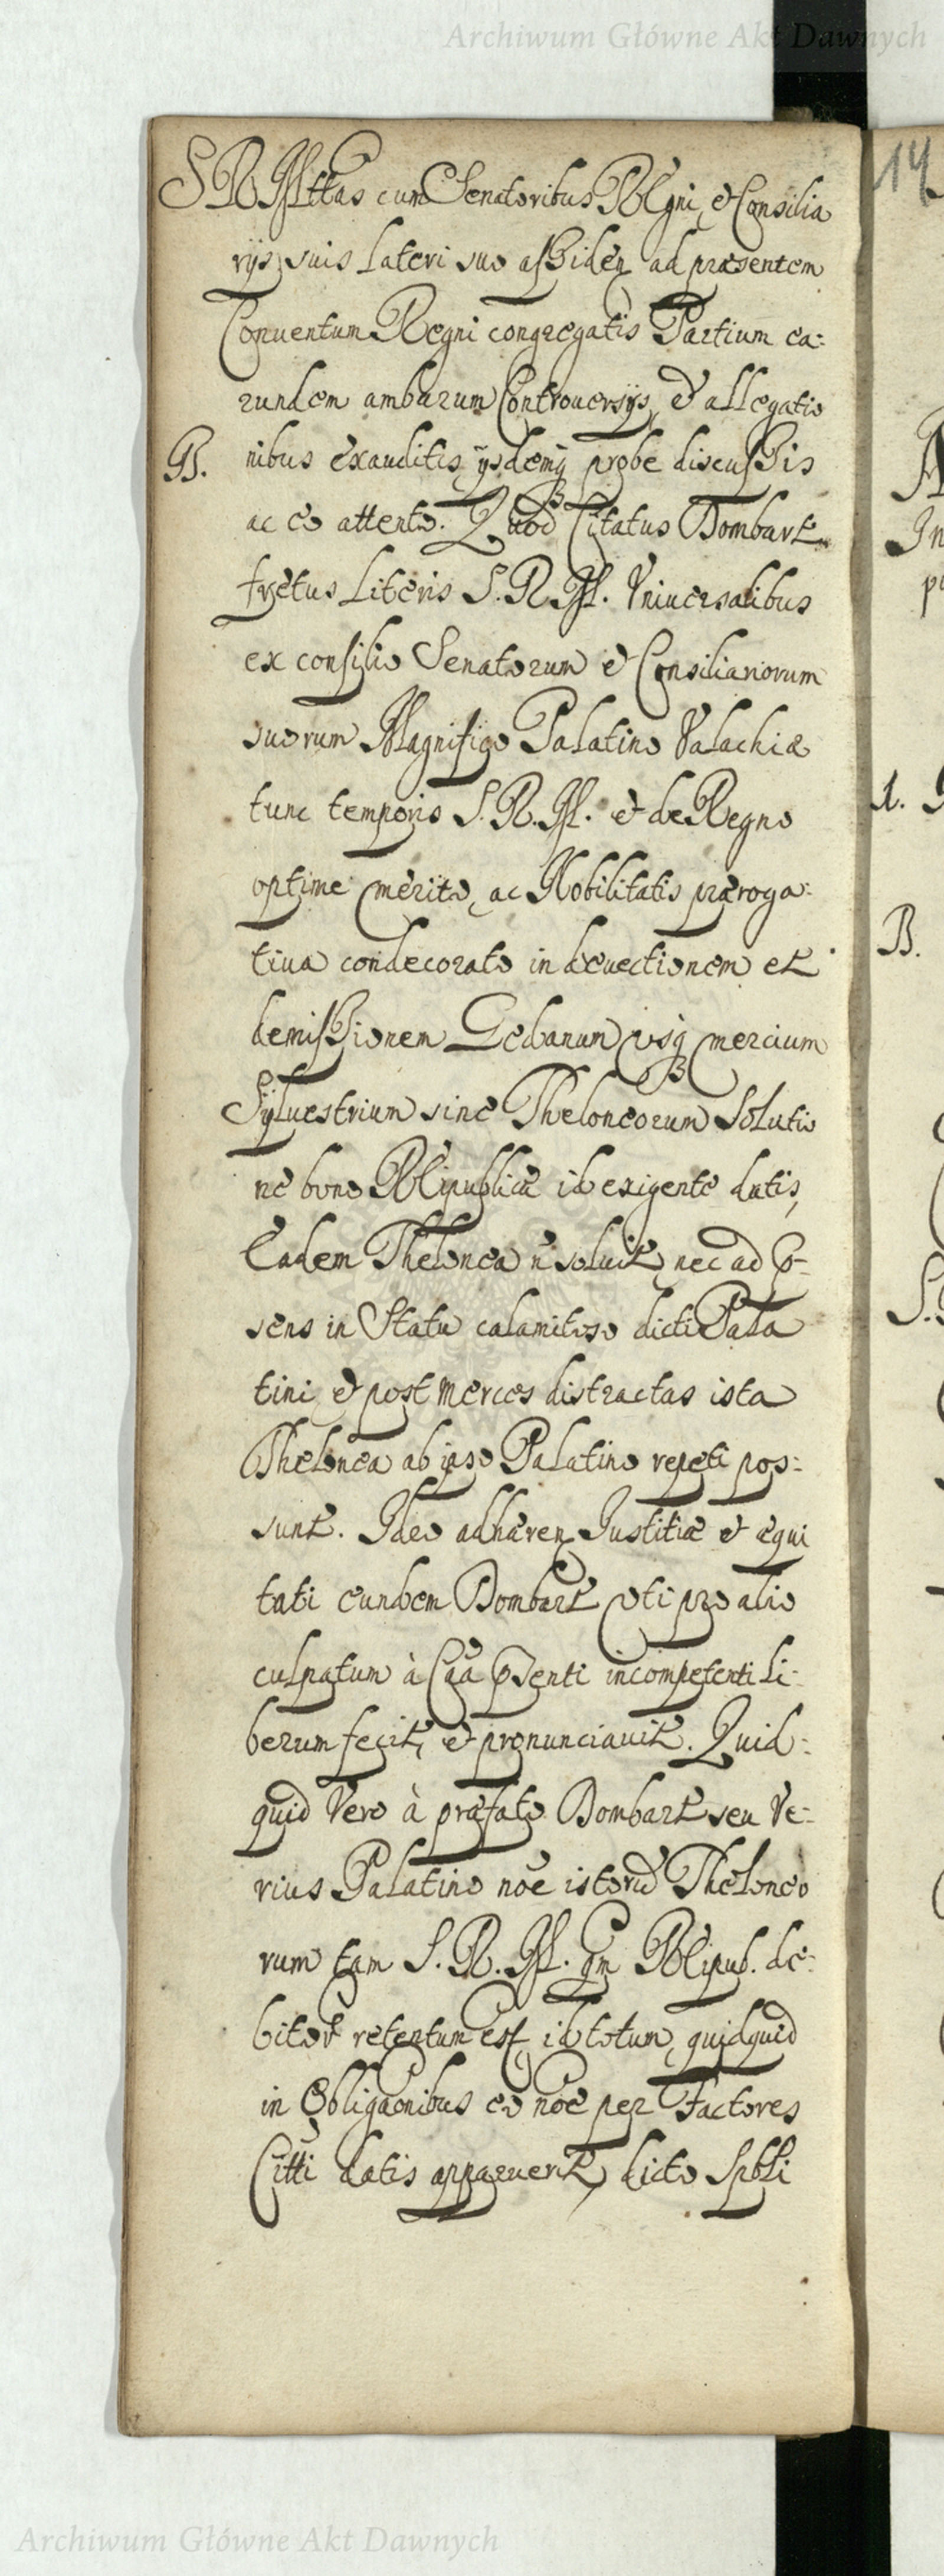 Archiwum Główne Akt Dawnych
14
S R Mttas cum Senatoribus Regni, et Consilia
rijs suis Lateri suo assiden ad præsentem
Conuentum Regni congregatis Partium ea:
rundem ambarum Controuersijs, et allegatio
B. nibus exauditis, ijsdemq probe discussis
ac eo attento. Quod Citatus Dombart
fretus Literis S. R. M. Vniuersalibus
ex consilio Senatorum et Consiliariorum
suorum Magnifico Palatino Valachiæ
tunc temporis S. R. M. et de Regno
optime merito, ac Nobilitatis præroga:
tiua condecorato in deuectionem et
demissionem Gedanum vsq mercium
Syluestrium sine Theloneorum Solutio
ne bono Reipublicæ id exigente datis,
Eadem Thelonea n soluit, nec ad p-
sens in Statu calamitoso dicti Pala
tini et post merces distractas ista
Thelonea ab ipso Palatino repeti pos:
sunt. Ideo adhæren Iustitiæ et æqui
tati eundem Dombart vti pro alio
culpatum à Caa pnti incompetenti li:
berum fecit, et pronunciauit. Quid:
quid Vero à præfato Dombart seu Ve:
rius Palatino noe istorū Theloneo
rum tam S. R. M. qm Reipub. de:
bitor retentum est, id totum, quidquid
in Obligaonibus eo noe per Factores
Citti datis apparuerit, dicto Spbli
A
In
p
1.
B.
S.
Archiwum Główne Akt Dawnych